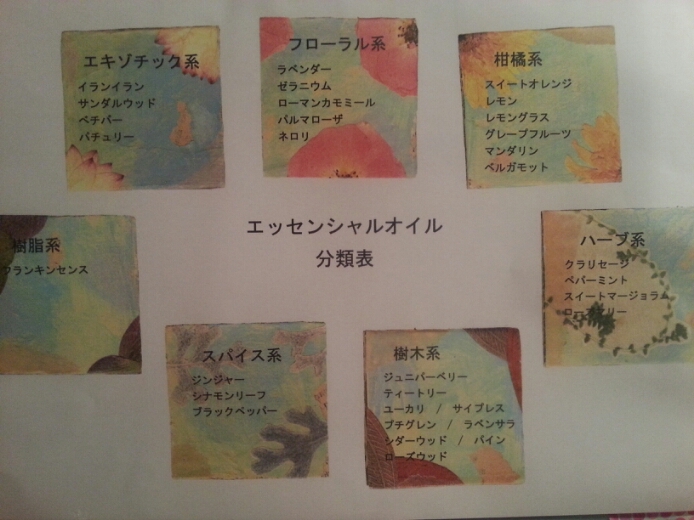 エキゾチック系
イランイラン
サンダルウッド
ベチバー
パチュリー
フローラル系
ラベンダー
ゼラニウム
ローマンカモミール
パルマローザ
ネロリ
柑橘系
スイートオレンジ
レモン
レモングラス
グレープフルーツ
マンダリン
ベルガモット
エッセンシャルオイル
分類表
樹脂系
フランキンセンス
ハーブ系
クラリセージ
ペパーミント
スイートマージョラム
ローズマリー
スパイス系
ジンジャー
シナモンリーフ
ブラックペッパー
樹木系
ジュニパーベリー
ティートリー
ユーカリ / サイプレス
プチグレン / ラベンサラ
シダーウッド / パイン
ローズウッド